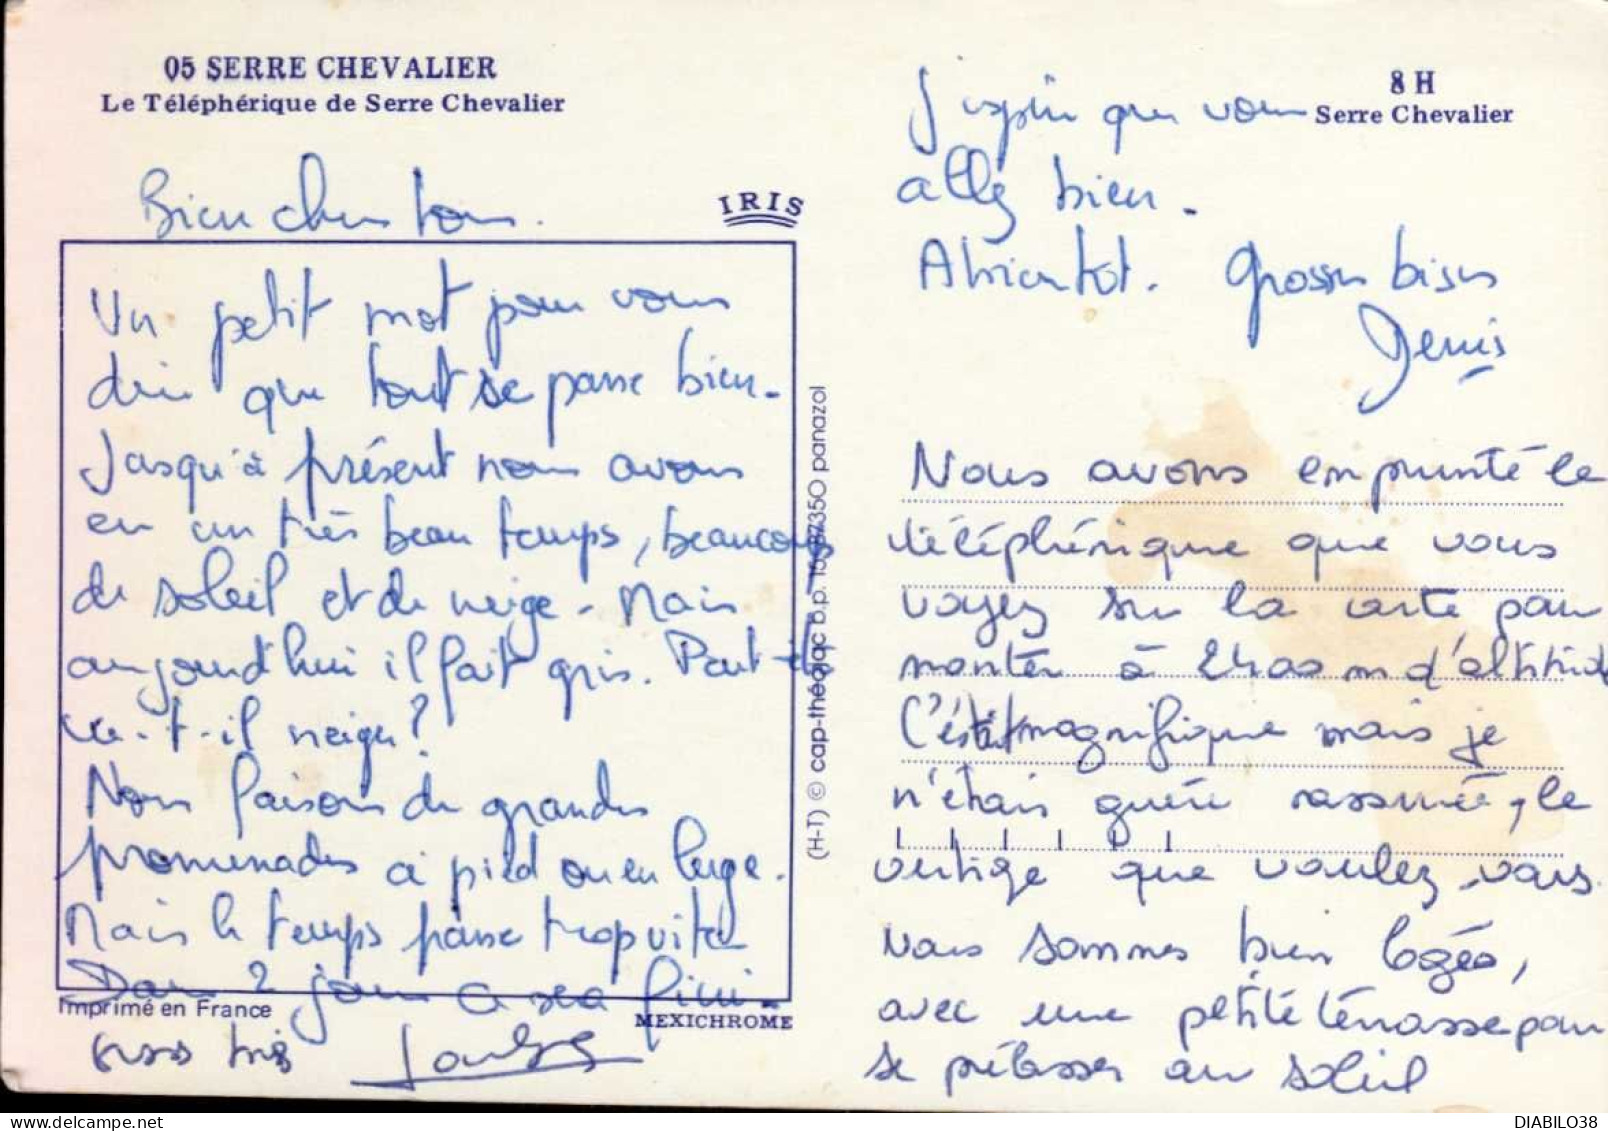 05 SERRE CHEVALIER
Le Téléphérique de Serre Chevalier
IRIS
Bien chers tous
Un petit mot pour vous
dire que tout se passe bien.
Jusqu'à présent nous avons
eu un très beau temps, beaucoup
de soleil et de neige. Mais
aujourd'hui il fait gris. Peut-être
va-t-il neiger?
Nous faisons de grandes
promenades à pied ou en luge.
Mais le temps passe trop vite
Dans 2 jours ce sera fini.
Gros bis
Imprimé en France
MEXICHROME
(H-T) © cap-théojac b.p. 87350 panazol
8 H
Serre Chevalier
J'espère que vous
allez bien.
A bientôt. Grosses bises
Denis
Nous avons emprunté le
téléphérique que vous
voyez sur la carte pour
monter à 2400 m d'altitude
C'était magnifique mais je
n'étais guère rassurée, le
vertige que voulez vous.
nous sommes bien logés,
avec une petite terrasse pour
se prélasser au soleil
DIABILO38